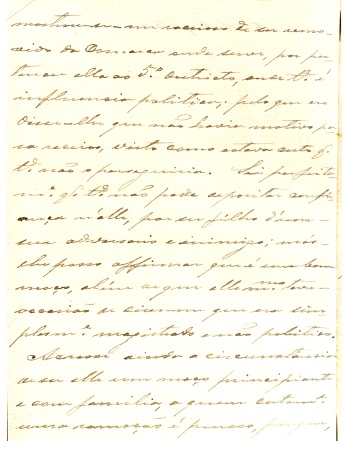 mostrou-se-me receioso de ser remo-
vido da Comarca onde serve, por per-
tencer ella ao 5º districto, onde td. é
influencia politica; pelo que eu
disse-lhe que não havia motivo pa-
ra receio, visto como estava certo q.
td. não o perseguiria. Sei perfeita
m.e q. td. não pode depositar confi-
ança n'elle, por ser filho d'um
seu adversario e inimigo; mas
lhe posso affirmar que é um bom
moço, além de que elle m.mo teve
occasião de dizer-me que era sim
plesm.e magistrado e não politico.
Accresce ainda a circumstancia
de ser elle um moço principiante
e com familia, a quem certam.e
uma remoção é penosa, porque,